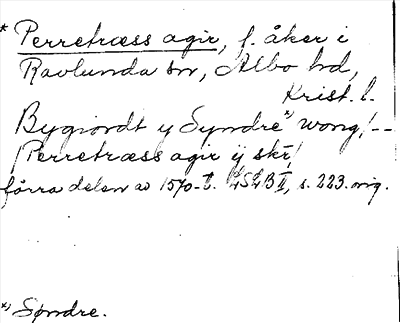 * Perretræss agir, f. åker i
Ravlunda sn, Albo hd,
Krist. l.
Bygiordt y Syndre *) wong /--
/ Perretræss agir ij skr /
förra delen av 1570-t. LSLB II, s. 223. orig.
*) Søndre.